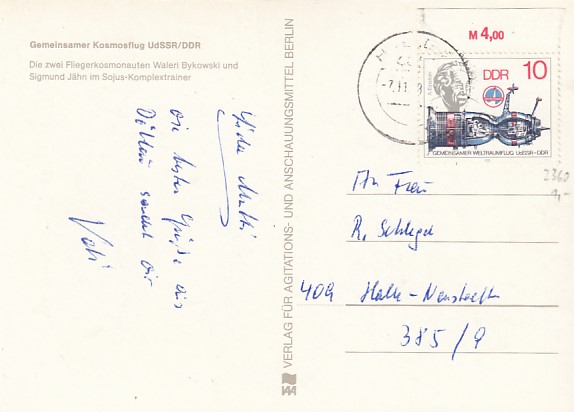 Gemeinsamer Kosmosflug UdSSR/DDR
Die zwei Fliegerkosmonauten Waleri Bykowski und
Sigmund Jähn im Sojus-Komplextrainer
Liebe Mutti
die besten Grüße aus
Dölau sendet dir
Vati
VERLAG FÜR AGITATIONS- UND ANSCHAUUNGSMITTEL BERLIN
M 4,00
DDR 10
A. Einstein
GEMEINSAMER WELTRAUMFLUG UdSSR-DDR
2360
1,-
An Frau
R. Schlegel
409 Halle-Neustadt
385/9